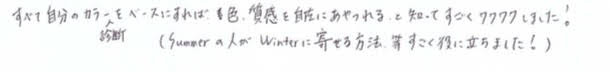 すべて自分のカラー診断をベースにすれば、色、質感を自在にあやつれる、と知ってすごくワクワクしました!
(Summerの人がWinterに寄せる方法、等すごく役に立ちました!)